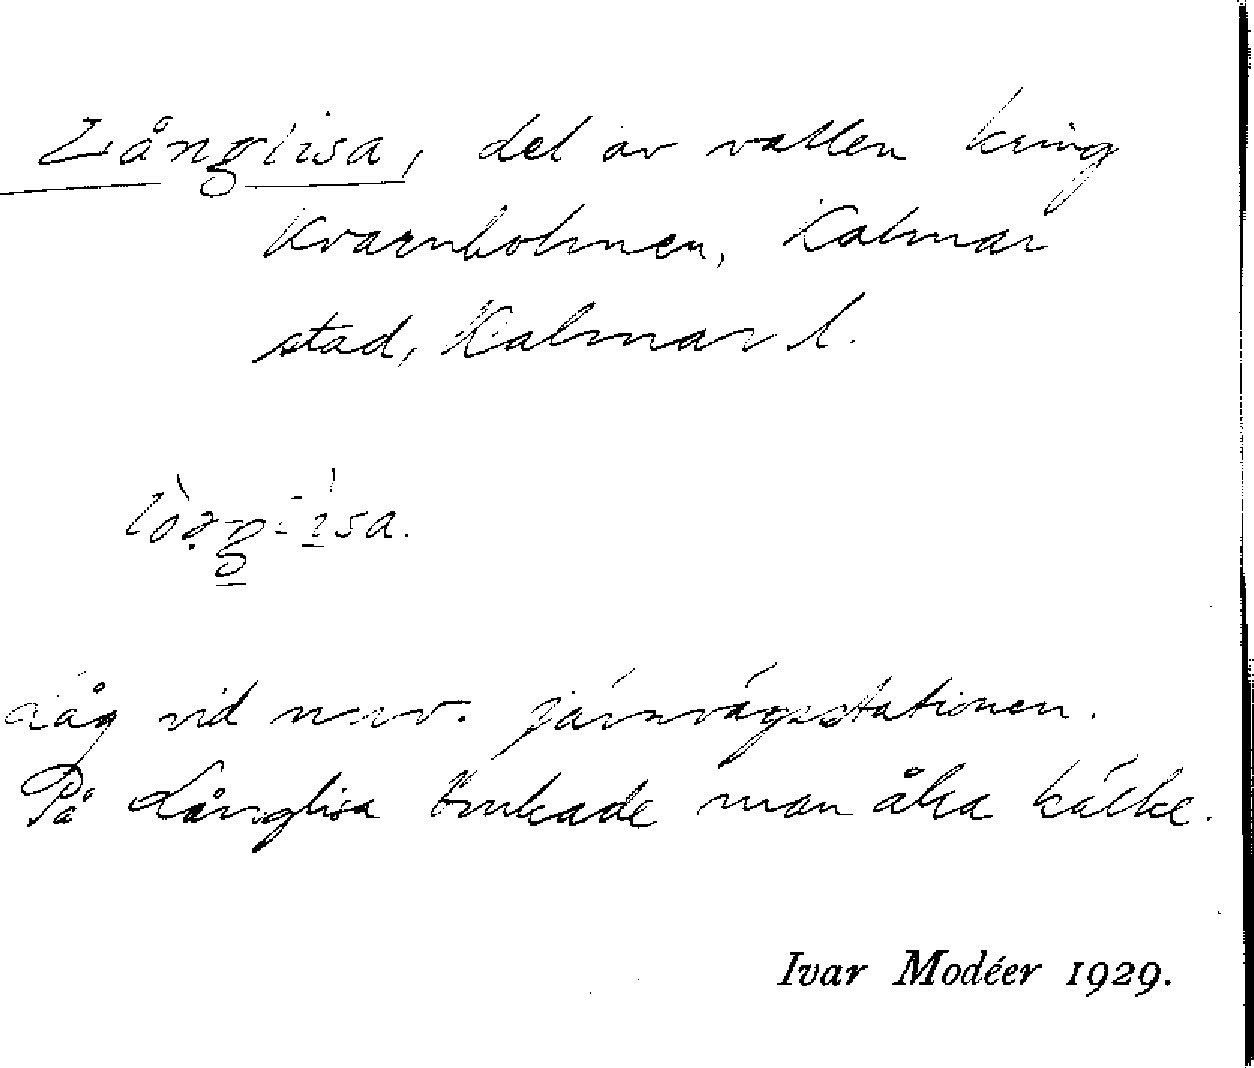 Långlisa, del av vallen kring
Kvarnholmen, Kalmar
stad, Kalmar l.
Låg vid nuv. järnvägsstationen.
På Långlisa brukade man åka kälke.
Ivar Modéer 1929.